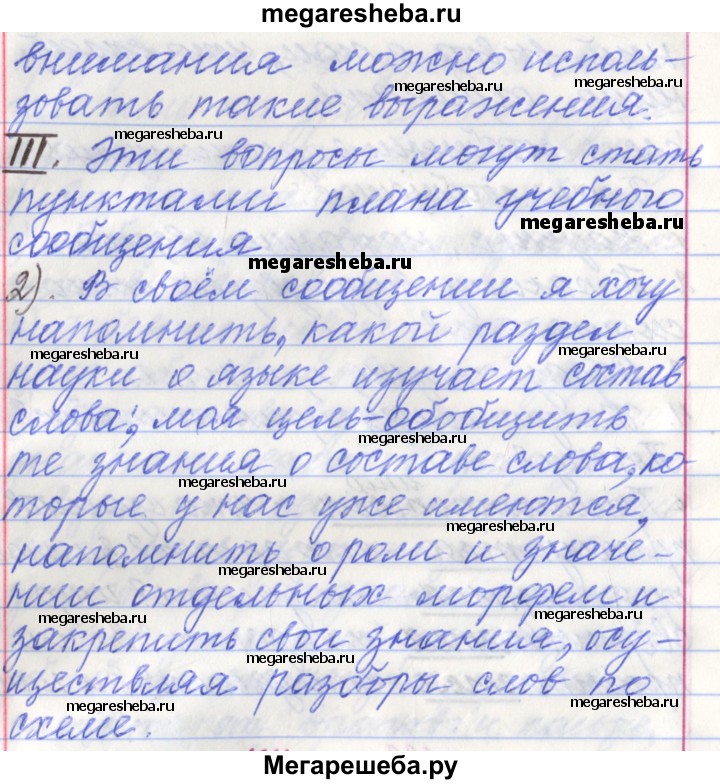 megaresheba.ru
внимания можно исполь-
megaresheba.ru megaresheba.ru
зовать такие выражения.
megaresheba.ru
III. Эти вопросы могут стать
пунктами плана учебного
megaresheba.ru
сообщения
megaresheba.ru
2). В своём сообщении я хочу
напомнить, какой раздел
megaresheba.ru megaresheba.ru
науки о языке изучает состав
слова; моя цель-обобщить
megaresheba.ru
те знания о составе слова, ко-
megaresheba.ru
торые у нас уже имеются,
megaresheba.ru
напомнить о роли и значе-
megaresheba.ru
нии отдельных морфем и
megaresheba.ru megaresheba.ru
закрепить свои знания, осу-
megaresheba.ru
ществляя разборы слов по
megaresheba.ru
схеме.
Мегарешеба.ру